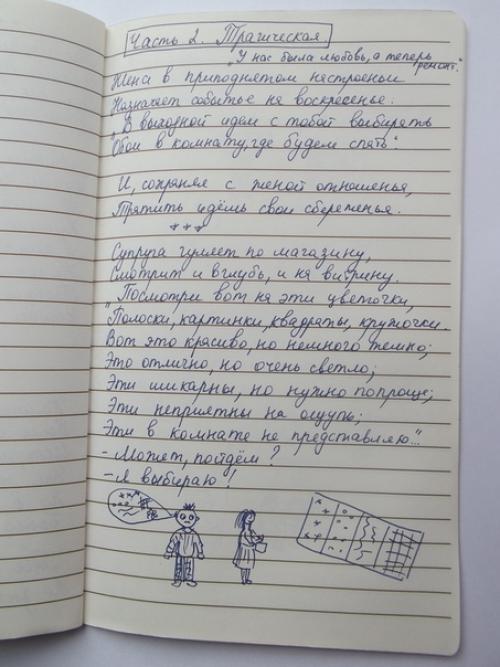 Часть 2. Трагическая.
"У нас была любовь, а теперь
ремонт."
Жена в приподнятом настроеньи
Назначает событье на воскресенье:
"В выходной идем с тобой выбирать
Обои в комнату, где будем спать".
И, сохраняя с женой отношенья,
Тратить идёмь свои сбереженья.
***
Супруга гуляет по магазину,
Смотрит и вглубь, и на витрину.
"Посмотри вот на эти цветочки,
Полоски, картинки, квадраты, кружочки.
Вот это красиво, но немного темно;
Это отлично, но очень светло;
Эти шикарны, но нужно попроще;
Эти неприятны на ощупь;
Эти в комнате не представляю..."
- Может, пойдём?
- Я выбираю!